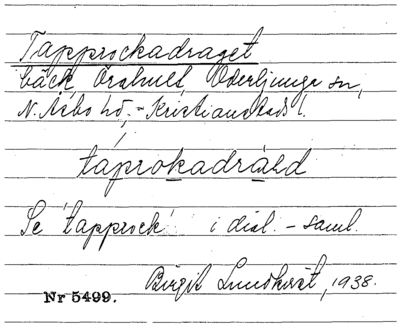 Tapprockadraget
bäck, Örahult, Oderljunga sn,
N. Åsbo hd. - Kristianstads l.
táprokadràhd
Se 'tapprock' i dial. - saml.
Birgit Lundkvist, 1938.
Nr 5499.